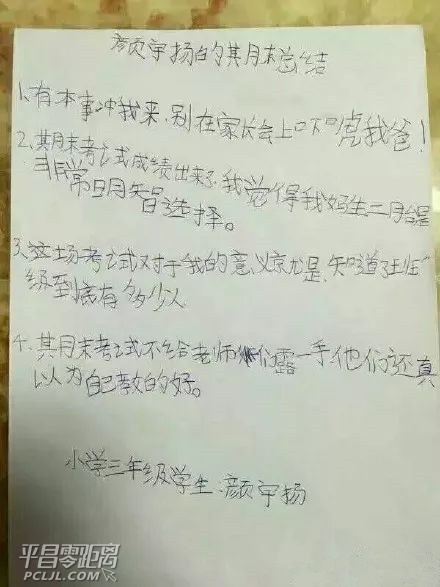 颜宇扬的其月末总结
1、有本事冲我来,别在家长会上口下口虎我爸!
2.其月末考试成绩出来了,我觉得我妈生二月台是
非常日月知日选择。
3.这场考试对于我的意义京尤是,知道了班
级到底有多少人
4.其月末考试不给老师们露一手,他们还真
以为自己教的好。
小学三年级学生:颜宇扬
平昌零距离
PCLJL.COM